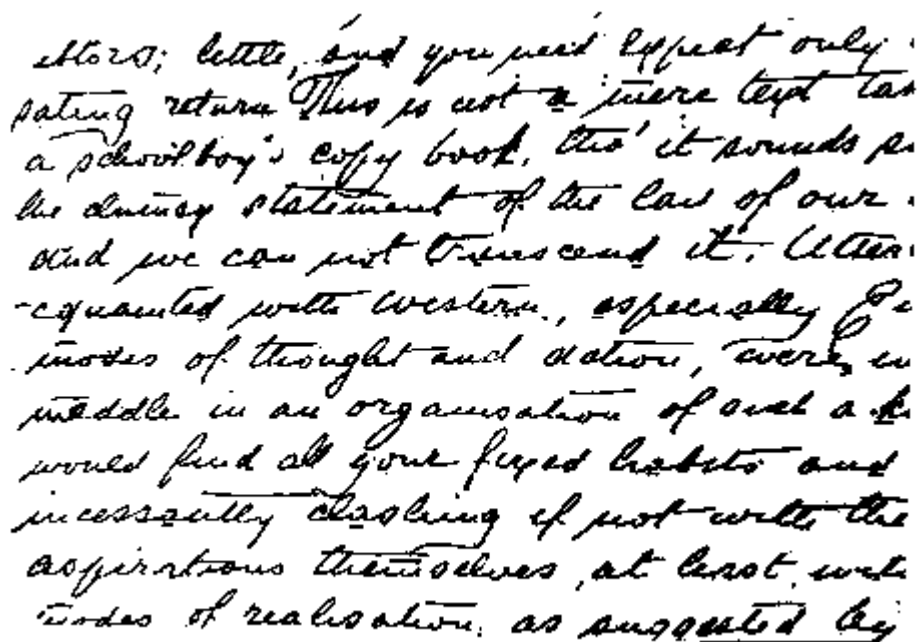 efforts; little, and you need expect only
sating return This is not a mere text
a schoolboy's copy book, tho' it sounds
the clumsy statement of the law of our
and we can not transcend it. Utter
-cquainted with Western, especially
modes of thought and action, were
meddle in an organisation of such a
would find all your fixed habits and
incessantly clashing if not with the
aspirations themselves, at least with
modes of realisation, as suggested by